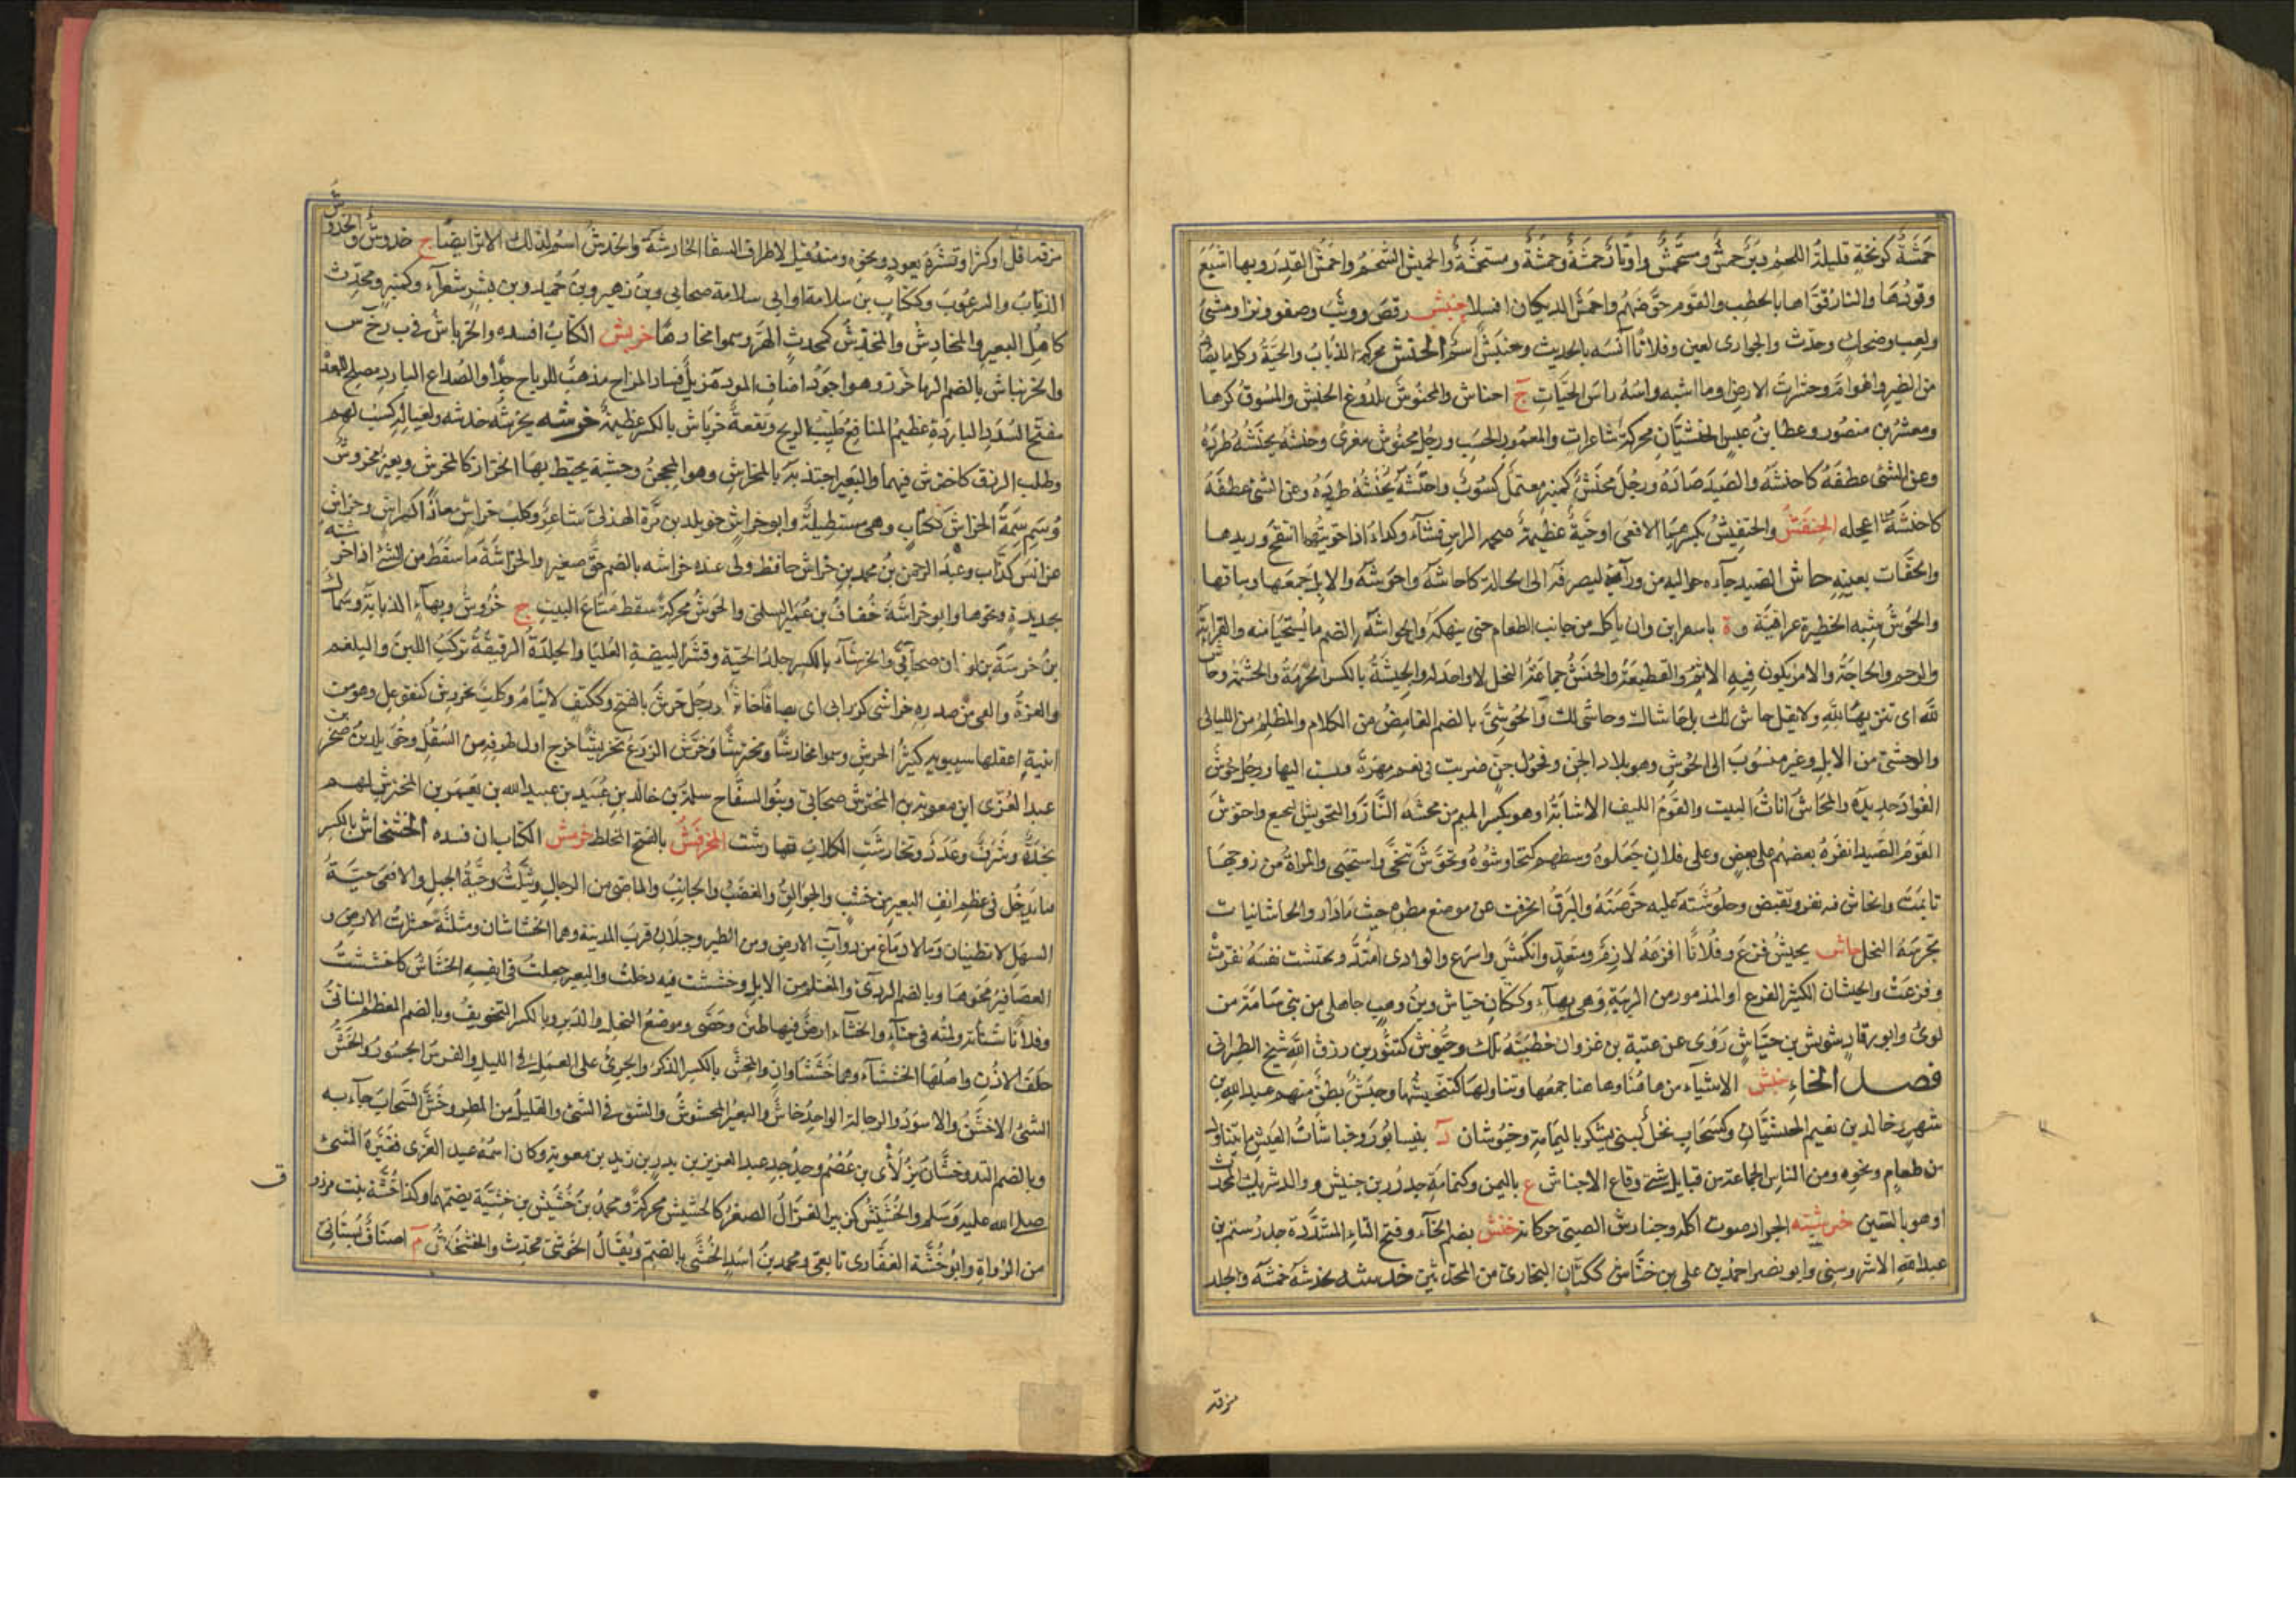 حَمْشَةٌ كونخةٍ قليلةُ اللحم ووَتَرٌ حمشٌ ومستحمشٌ واوتارٌ حمشةٌ وحمشةٌ ومستحمشةٌ والحميش الشحم واحمش القدر وبها اشبع
وقودها والنار قوّاها بالحطب والقوم حرّضهم واحمش الديكان اقتتلا حنبش رقص ووثب وصفق ونزا ومشى
ولعب وضحك وحدث والجوارى لعبن وفلانا آنسه بالحديث وحنبش اسم الحنش محركة الذباب والحية وكل ما يصاد
من الطير والهوام وحشرات الارض وما اشبه راسه راس الحيات ج احناش والمحنوش ملدوغ الحنش والمسوق كرها
ومعشر بن منصور وعطا بن عبس الحنشيان محركة شاعران والمغموز الحسب ورجل محنوش مغرى وحنشه يحنشه طرده
وعن الشئ عطفه كاحنشه والصيد صاده ورجل محنش كمنبر معتمل كسوب واحنشه يحنشه طرده وعن الشئ عطفه
كاحنشه اعجله الحنفش والحنفيش بكسرهما الافعى او حية عظيمة ضخمة الراس رقشاء وكداء اذا حويتها انتفخ وريدها
والحفاث بعينه حاش الصيد جاءه من حواليه ليصرفه الى الحبالة كاحاشه واحوشه والابل جمعها وساقها
والحوش شبه الحظيرة عراقية وة باسفراين وان ياكل من جوانب الطعام حتى ينهكه والحواشة بالضم ما يستحيا منه والقرابة
والرحم والحاجة والامر يكون فيه الاثم والقطيعة والحائش جماعة النخل لا واحد له والحيشة بالكسر الحرمة والحشمة وحاش
لله اى تنزيها لله ولا تقل حاش لك بل حاشاك وحاشى لك والحوشى بالضم الغامض من الكلام والمظلم من الليالى
والوحشى من الابل وغيره منسوب الى الحوش وهو بلاد الجن او فحول جن ضربت فى نعم مهرة فنسبت اليها ورجل حوش
الفؤاد حديده والمحاش اثاث البيت والقوم اللفيف الاشابة او هو بكسر الميم من محشته النار والتحويش التجميع واحتوش
القوم الصيد انفره بعضهم على بعض وعلى فلان جعلوه وسطهم كتحاوشوه وتحوش تنحى واستحيى والمراة من زوجها
تايمت وانحاش عنه نفر وتقبض وحاوشته عليه حرضته والبرق انحرفت عن موضع مطره حيث مادار والحاشانيات
بحرمة النخل حاش يحيش فزع وفلانا افزعه لازم ومتعد وانكمش واسرع والوادى امتد وتحيشت نفسه نفرت
وفزعت والحيشان الكثير الفزع او المذعور من الريبة وهى بهاء وككتان حياش بن وهب جاهلى من بنى سامة بن
لوى وابو رقاد شويش بن حياش روى عن عتبة بن غزوان خطبته تلك وحيوش كتنور بن رزق الله شيخ الطبرانى
فصل الخاء خبش الاشياء من هاهنا وهاهنا جمعها وتناولها كتخبشها وحبش بطن منهم عبد الله بن
شهر وخالد بن نعيم الخبشيان وكسحاب نخل لبنى يشكر باليمامة وخبوشان د بنيسابور وخباشات العيش ما يتناول
من طعام ونحوه ومن الناس الجماعة من قبايل شتى وقاع الاخباش ع باليمن وكثمامة جد زر بن حبيش ووالد شريك المحدث
او هو بالسين خترشة الجراد صوت اكله وخنارش الصبى حركاته ختش بضم الخاء وفتح التاء المشددة جد رستم بن
عبد الله الاشروسنى وابو نصر احمد بن على بن ختاش ككتان البخارى من المحدثين خدشه يخدشه خمشه والجلد
مزقه
مزقه قل او كثر او قشره بعود ونحوه ومنه قيل لاطراف السفا الخادشة والخدش اسم لذلك الاثر ايضا ج خدوش والخدوش
الذباب والبرغوث وككتاب بن سلامة او ابى سلامة صحابى وبن زهير وبن حميد وبن بشر شعراء وكمنبر ومحدث
كاهل البعير والمخادش والمخدش كمحدث الهر وسموا مخادشا خربش الكتاب افسده والخرباش فى ب ر خ ش
والخرنباش بالضم المرماخوز وهو اجود اصناف المرو مزيل فساد المزاج مذهب للرياح جدا والصداع البارد مصلح للمعدة
مفتح السدد الباردة عظيم المنافع طيب الريح ووقعة خرباش بالكسر عظيمة خرشه يخرشه خدشه ولعياله كسب لهم
وطلب الرزق كاخترش فيهما والبعير اجتذبه بالمخراش وهو المحجن وخشبة يخط بها الخراز كالمخرش وبعير مخروش
وسم سمة الخراش ككتاب وهى مستطيلة وابو خراش خويلد بن مرة الهذلى شاعر وكلب خراش معاذ اكهراش وخراش
عن انس كذاب وعبد الرحمن بن محمد بن خراش حافظ ولى عنده خراشه بالضم حق صغير والخراشة ما سقط من الشئ اذا خرشته
بحديدة ونحوها وابو خراشة خفاف بن عمير السلمى والخرش محركة سقط متاع البيت ج خروش وبهاء الذبابة وسماك
بن خرشة بن لوذان صحابى والخرشاء بالكسر جلد الحية وقشر البيضة العليا والجلدة الرقيقة تركب اللبن والبلغم
والغبرة والقى من صدره خراشى كزرابى اى بصاقا خاثرا ورجل خرش بالفتح وككتف لا ينام وكلب نخورش كنفوعل وهو من
ابنية اغفلها سيبويه كثير الخرش وسموا مخارشا ومخترشا وخرش الزرع تخريشا خرج اول طرفه من السنبل وخويلد بن صخر بن
عبد العزى بن معوية بن المخترش صحابى وبنو السفاح سلمة بن خالد بن عبيد بن عبد الله بن يعمر بن المخترش لهم
نجدة وشرف وعدد وتخارشت الكلاب تهارشت المخرفش بالفتح المخلط خرمش الكتاب ان فسده الخشخاش بالكسر
ما يدخل فى عظم انف البعير من خشب والجوالق والغضب والجانب والماضى من الرجال ويثلث وحية الجبل والافعى حية
السهل لا تطنيان وما لا دماغ له من دواب الارض ومن الطير وجبلان قرب المدينة وهما الخشاشان ومثلثة حشرات الارض و
العصافير ونحوها وبالضم الردى والمغتلم من الابل وخششت فيه دخلت والبعير جعلت فى انفه الخشاش كاخششت
وفلانا شنأته ولمته فى خفاء والخشاء ارض فيها طين وحصى وموضع النحل والدبر وبالكسر التخويف وبالضم العظم الناتئ
خلف الاذن واصلها الخششاء وهما خششاوان والمخش بالكسر الذكر والجرئ على العمل فى الليل والفرس الجسور والخش
الشئ الاخشن والاسود والرجالة الواحد خاش والبعير المخشوش والشق فى الشئ والقليل من المطر وخش السحاب جاء به
وبالضم التل وخشان بن لأى بن عصم وجد جد عبد العزيز بن بدر بن زيد بن معوية وكان اسمه عبد العزى فغيره النبى
صلى الله عليه وسلم والخشيش كزبير الغزال الصغير كالخشش محركة ومحمد بن خشيش بن خشية بضمهما وكذا خشة بنت مرزوق
من الرواة وابو خشة الغفارى تابعى ومحمد بن اسد الخشى بالضم ويقال الخوشى محدث والخشخاش م اصناف بستانى
ق